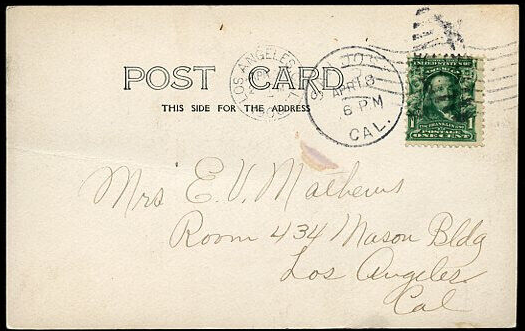 POST CARD
THIS SIDE FOR THE ADDRESS
LOS ANGELES
APR 18
6 PM
CAL.
1 1
POSTAGE
ONE CENT
Mrs E. V. Mathews
Room 434 Mason Bldg
Los Angeles
Cal